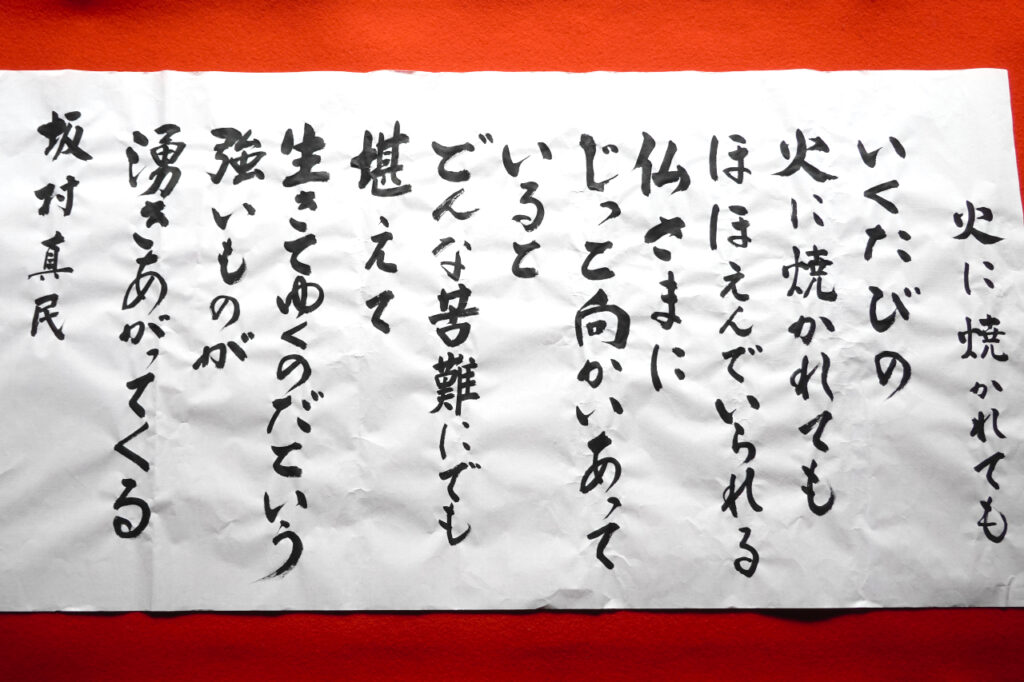 火に焼かれても
いくたびの
火に焼かれても
ほほえんでいられる
仏さまに
じっと向かいあって
いると
どんな苦難にでも
堪えて
生きてゆくのだという
強いものが
湧きあがってくる
坂村真民